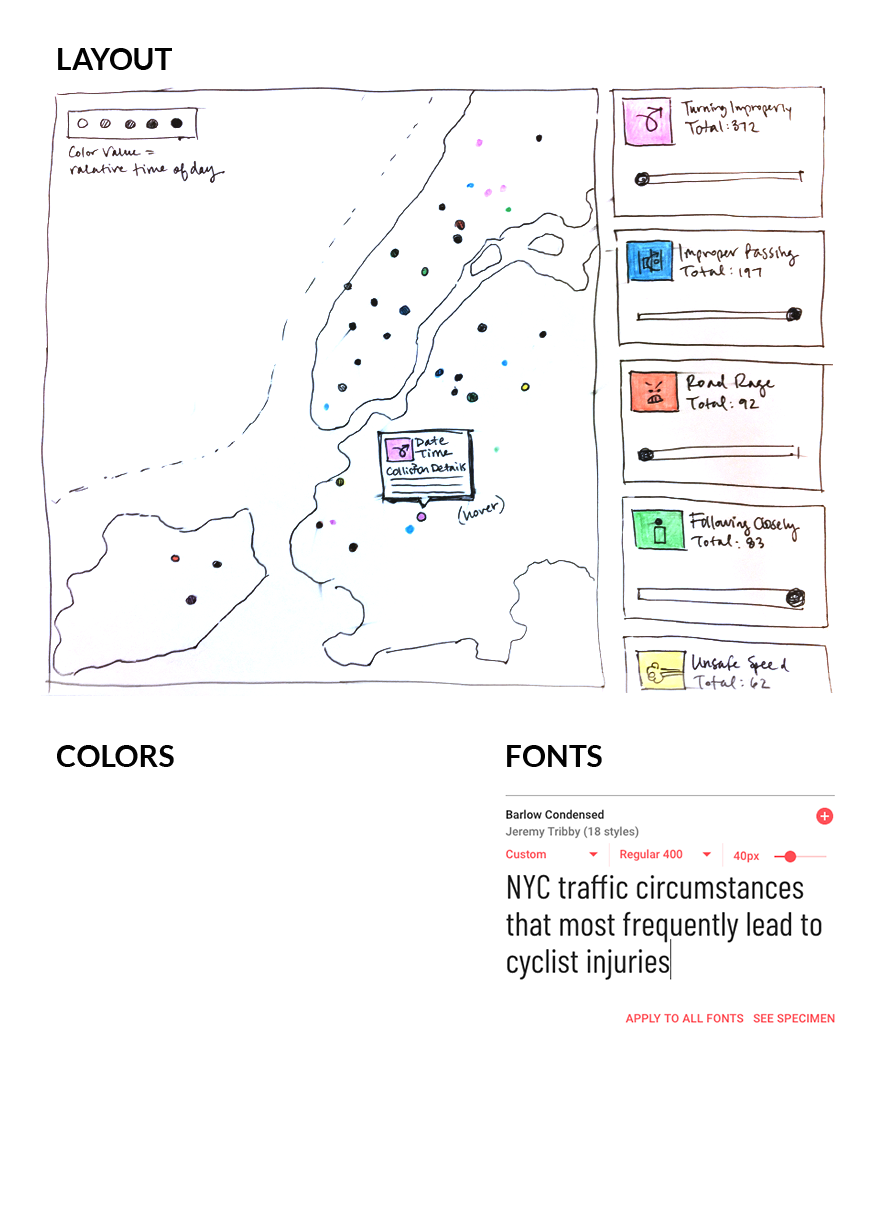 LAYOUT
Color Value =
ralative time of day
Turning Improperly
Total: 372
Improper Passing
Total: 197
Road Rage
Total: 92
Following Closely
Total: 83
Unsafe Speed
Total: 62
Date
Time
Collision Details
(hover)
COLORS
FONTS
Barlow Condensed
Jeremy Tribby (18 styles)
Custom
Regular 400
40px
NYC traffic circumstances
that most frequently lead to
cyclist injuries
APPLY TO ALL FONTS
SEE SPECIMEN